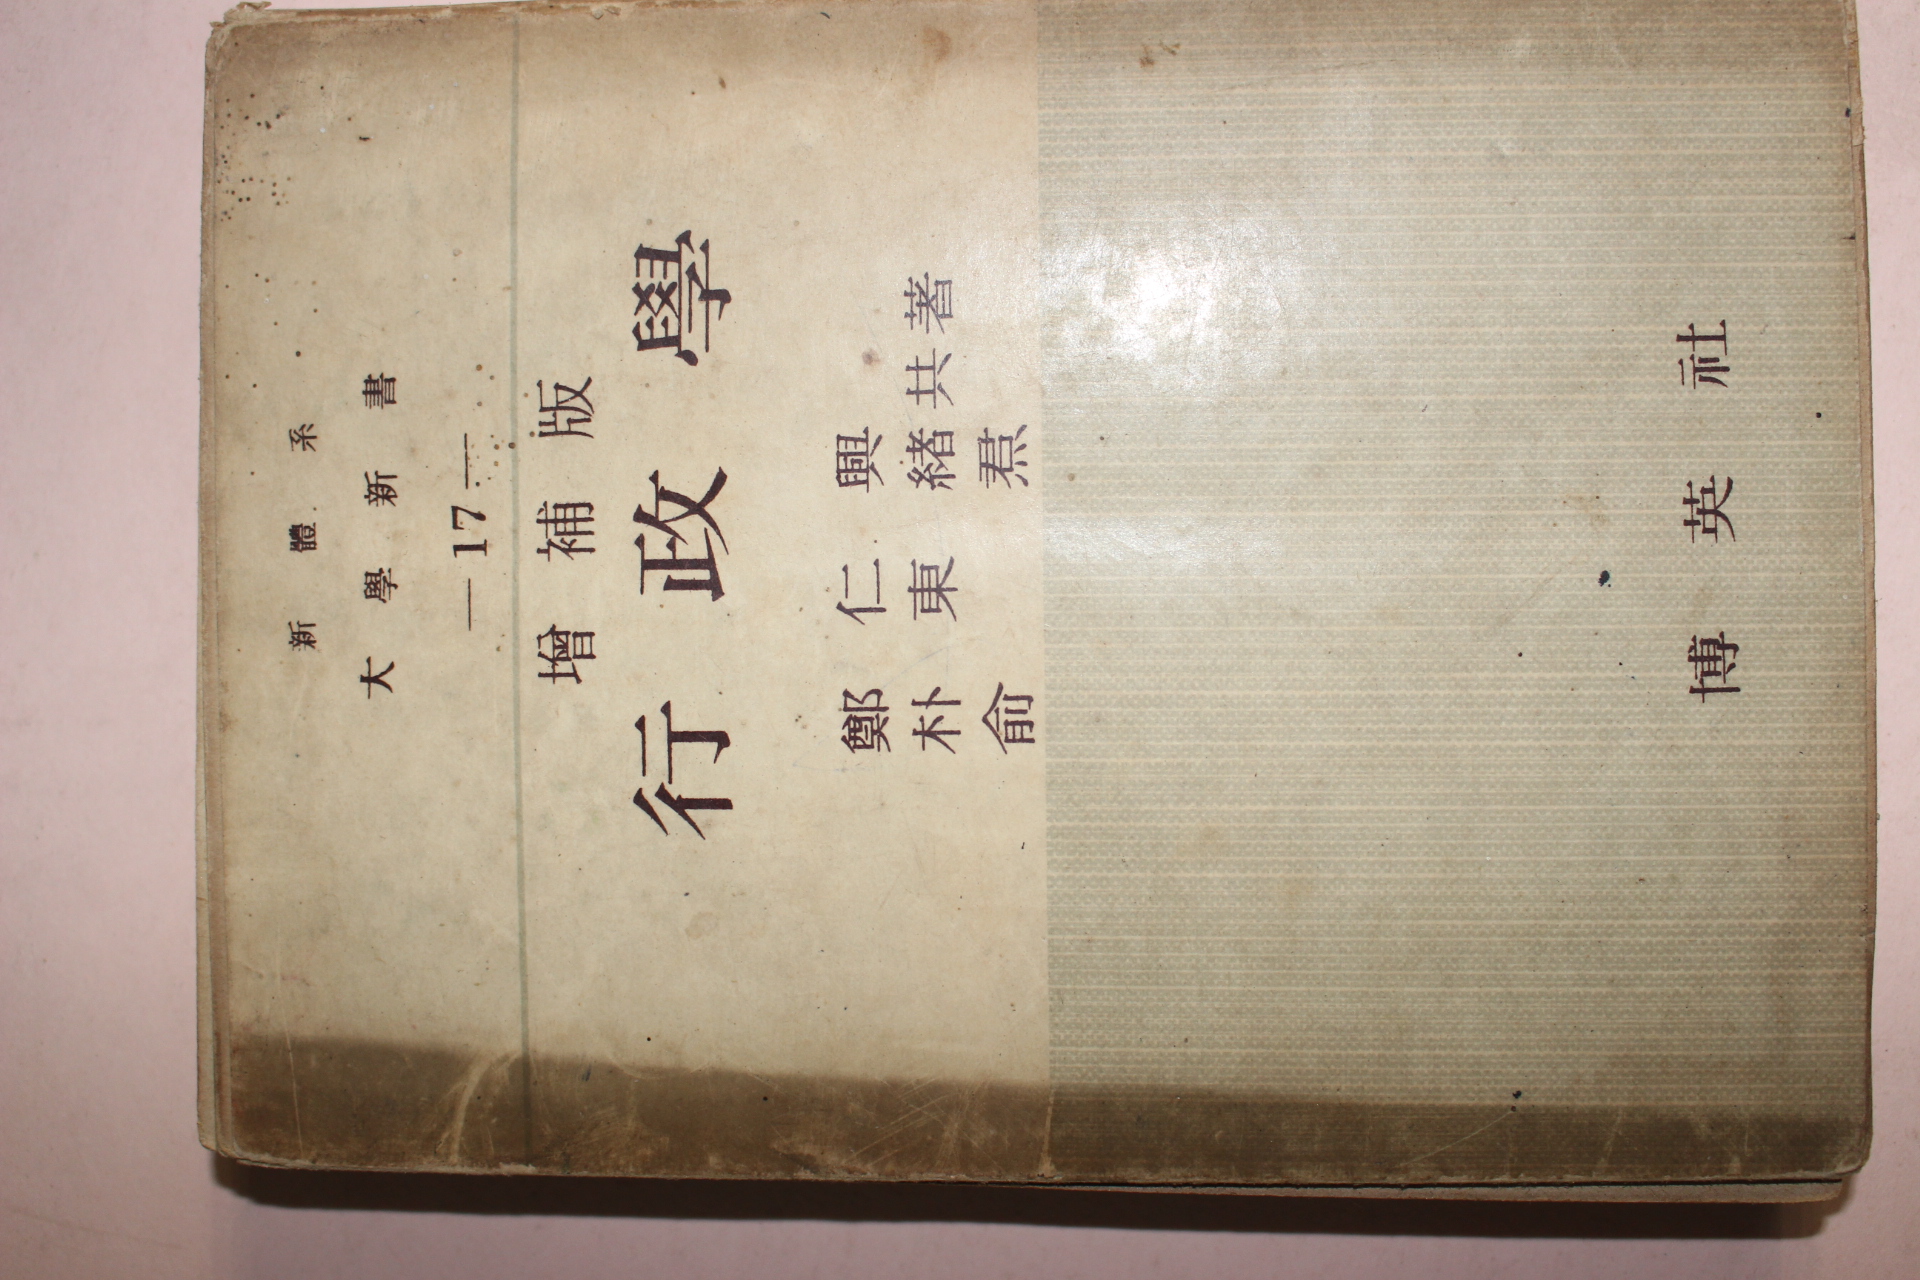 新體系
大學新書
—17—
增補版
行政學
鄭仁興
朴東緖共著
兪焄
博英社